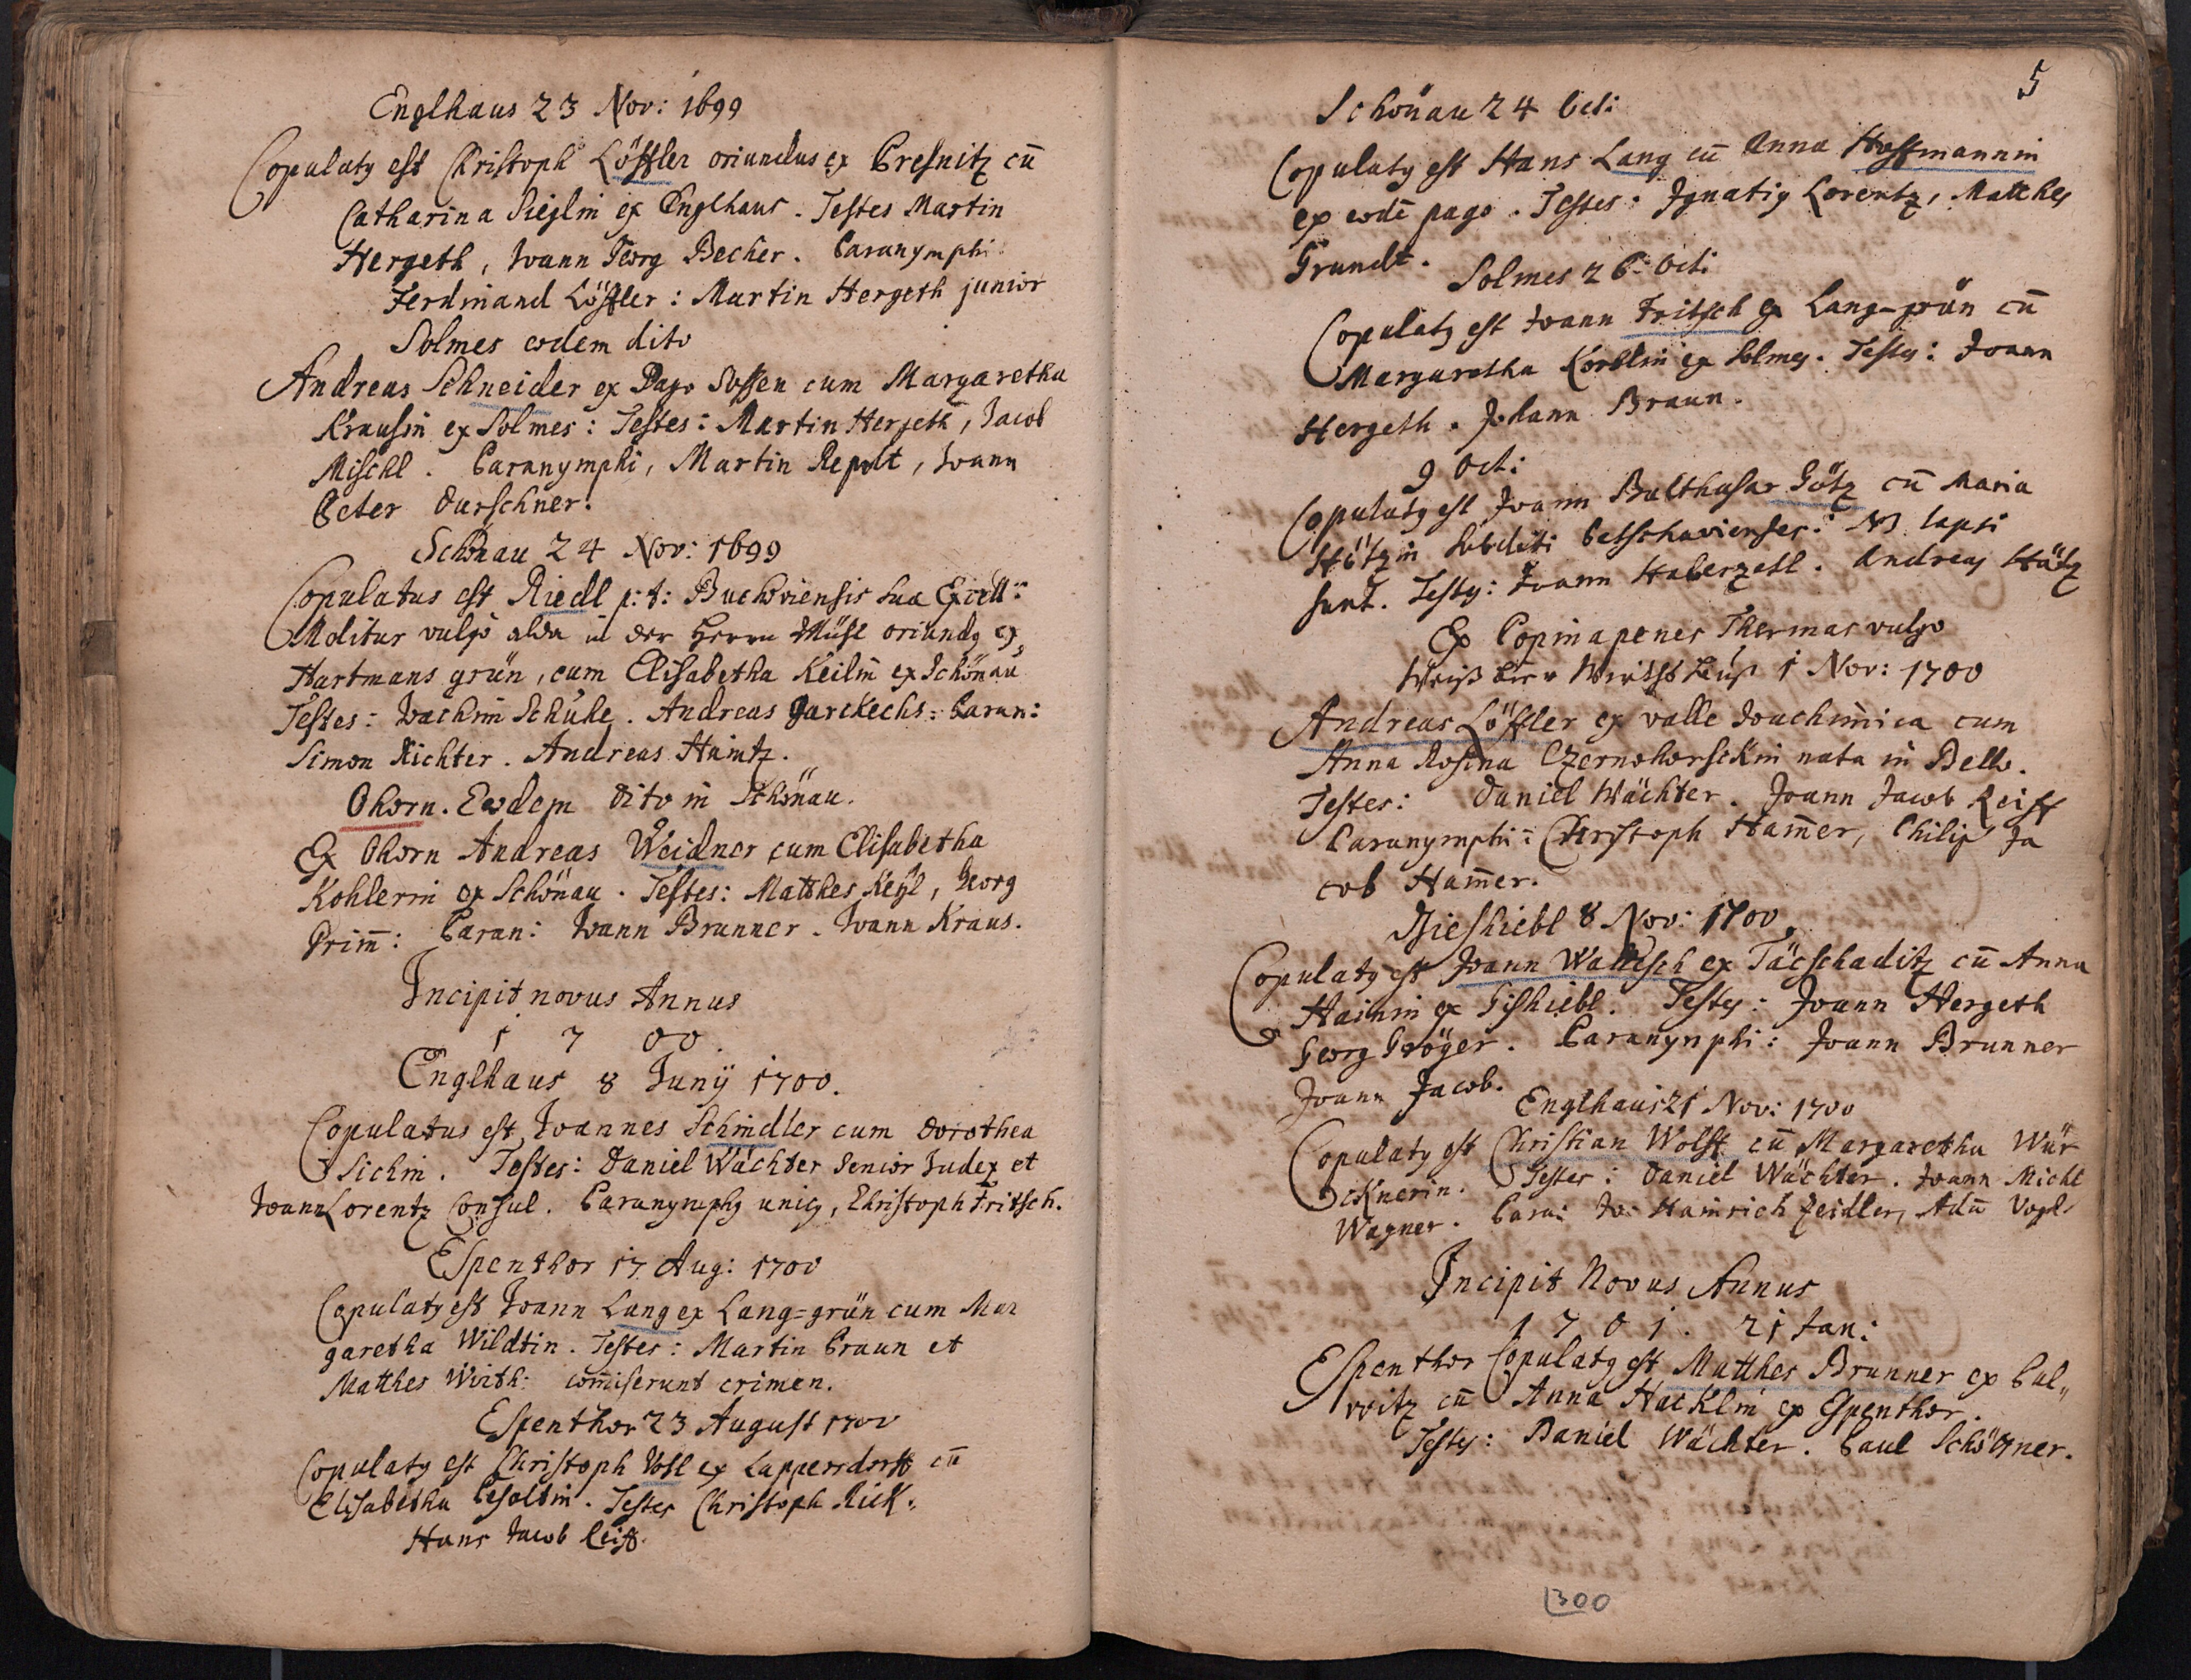 Englhaus 23 Nov: 1699
Copulatg est Christoph Löffler oriundus ex Presnitz cū
Catharina Sieglin ex Englhaus. Testes Martin
Hergeth, Joann Georg Becher. Paranymphi
Ferdinand Löffler: Martin Hergeth junior
Solmes eodem dito
Andreas Schneider ex Pago Sossen cum Margaretha
Krausin ex Solmes: Testes: Martin Hergeth, Jacob
Mischl. Paranymphi, Martin Repolt, Joann
Peter Durschner.
Schönau 24 Nov: 1699
Copulatus est Riedl p: t: Buchoviensis sua Excell:
Molitur vulgò alda in der Herrn Mühl oriundg ex
Hartmans grün, cum Elisabetha Keilin ex Schönau
Testes: Joachim Schuhe. Andreas Paran:
Simon Richter. Andreas Haintz.
Ohorn. Eodem dito in Schönau.
Ex Ohorn Andreas Weidner cum Elisabetha
Kohlerin ex Schönau. Testes: Matthes Keyl, Georg
Prim̄: Paran: Joann Brunner. Joann Kraus.
Incipit novus Annus
1700
Englhaus 8 Junÿ 1700.
Copulatus est Joannes Schindler cum Dorothea
Sichin. Testes: Daniel Wächter Senior Judex et
Joann Lorentz Consul. Paranymphg unicg, Christoph Fritsch.
Espenthor 17 Aug: 1700
Copulatg est Joann Lang ex Lang=grün cum Mar
garetha Wildtin. Testes: Martin Braun et
Matthes Wirth: com̄iserunt crimen.
Espenthor 23 August 1700
Copulatg est Christoph Vosl ex Lappersdorff cū
Elisabetha Pesoltin. Testes Christoph Rick.
Hans Jacob Reiff.
5
Schönau 24 Oct:
Copulatg est Hans Lang cū Anna Hoffmannin
ex eodē pago. Testes: Ignatig Lorentz, Matthes
Grundt.
Solmes 26 Oct:
Copulatg est Joann Fritsch ex Lang=grün cū
Margaretha Körblin ex Solmes. Testes: Joann
Hergeth. Johann Braun.
9 Oct:
Copulatg est Joann Balthasar Götz cū Maria
Hötzin subditi Petschovienses: NB lapsi
sunt. Testes: Joann Haberzetl. Andreas Hätz
Ex Popina penes Thermas vulgo
Weiß Bier Wirthshauß 1 Nov: 1700
Andreas Löffler ex valle Joachim̄ica cum
Anna Rosina Czernohorsckin nata in Bello.
Testes: Daniel Wächter. Joann Jacob Reiff
Paranymphi: Christoph Ham̄er, Philip Ja
cob Ham̄er.
Gieshiebl 8 Nov: 1700.
Copulatg est Joann Wantsch ex Täcschaditz cū Anna
Hainin ex Gishiebl. Testes: Joann Hergeth
Georg Gröger. Paranymphi: Joann Brunner
Joann Jacob.
Englhaus 21 Nov: 1700
Copulatg est Christian Wolff cū Margaretha Wür
cknerin. Testes: Daniel Wächter. Joann Michl
Wagner. Para: Jo: Hainrich Zeidler, Adā Vogl
Incipit Novus Annus
1701. 21 Jan:
Espenthor Copulatg est Matthes Brunner ex Pul„
witz cū Anna Hacklin ex Espenthor.
Testes: Daniel Wächter. Paul Schöttner.
300